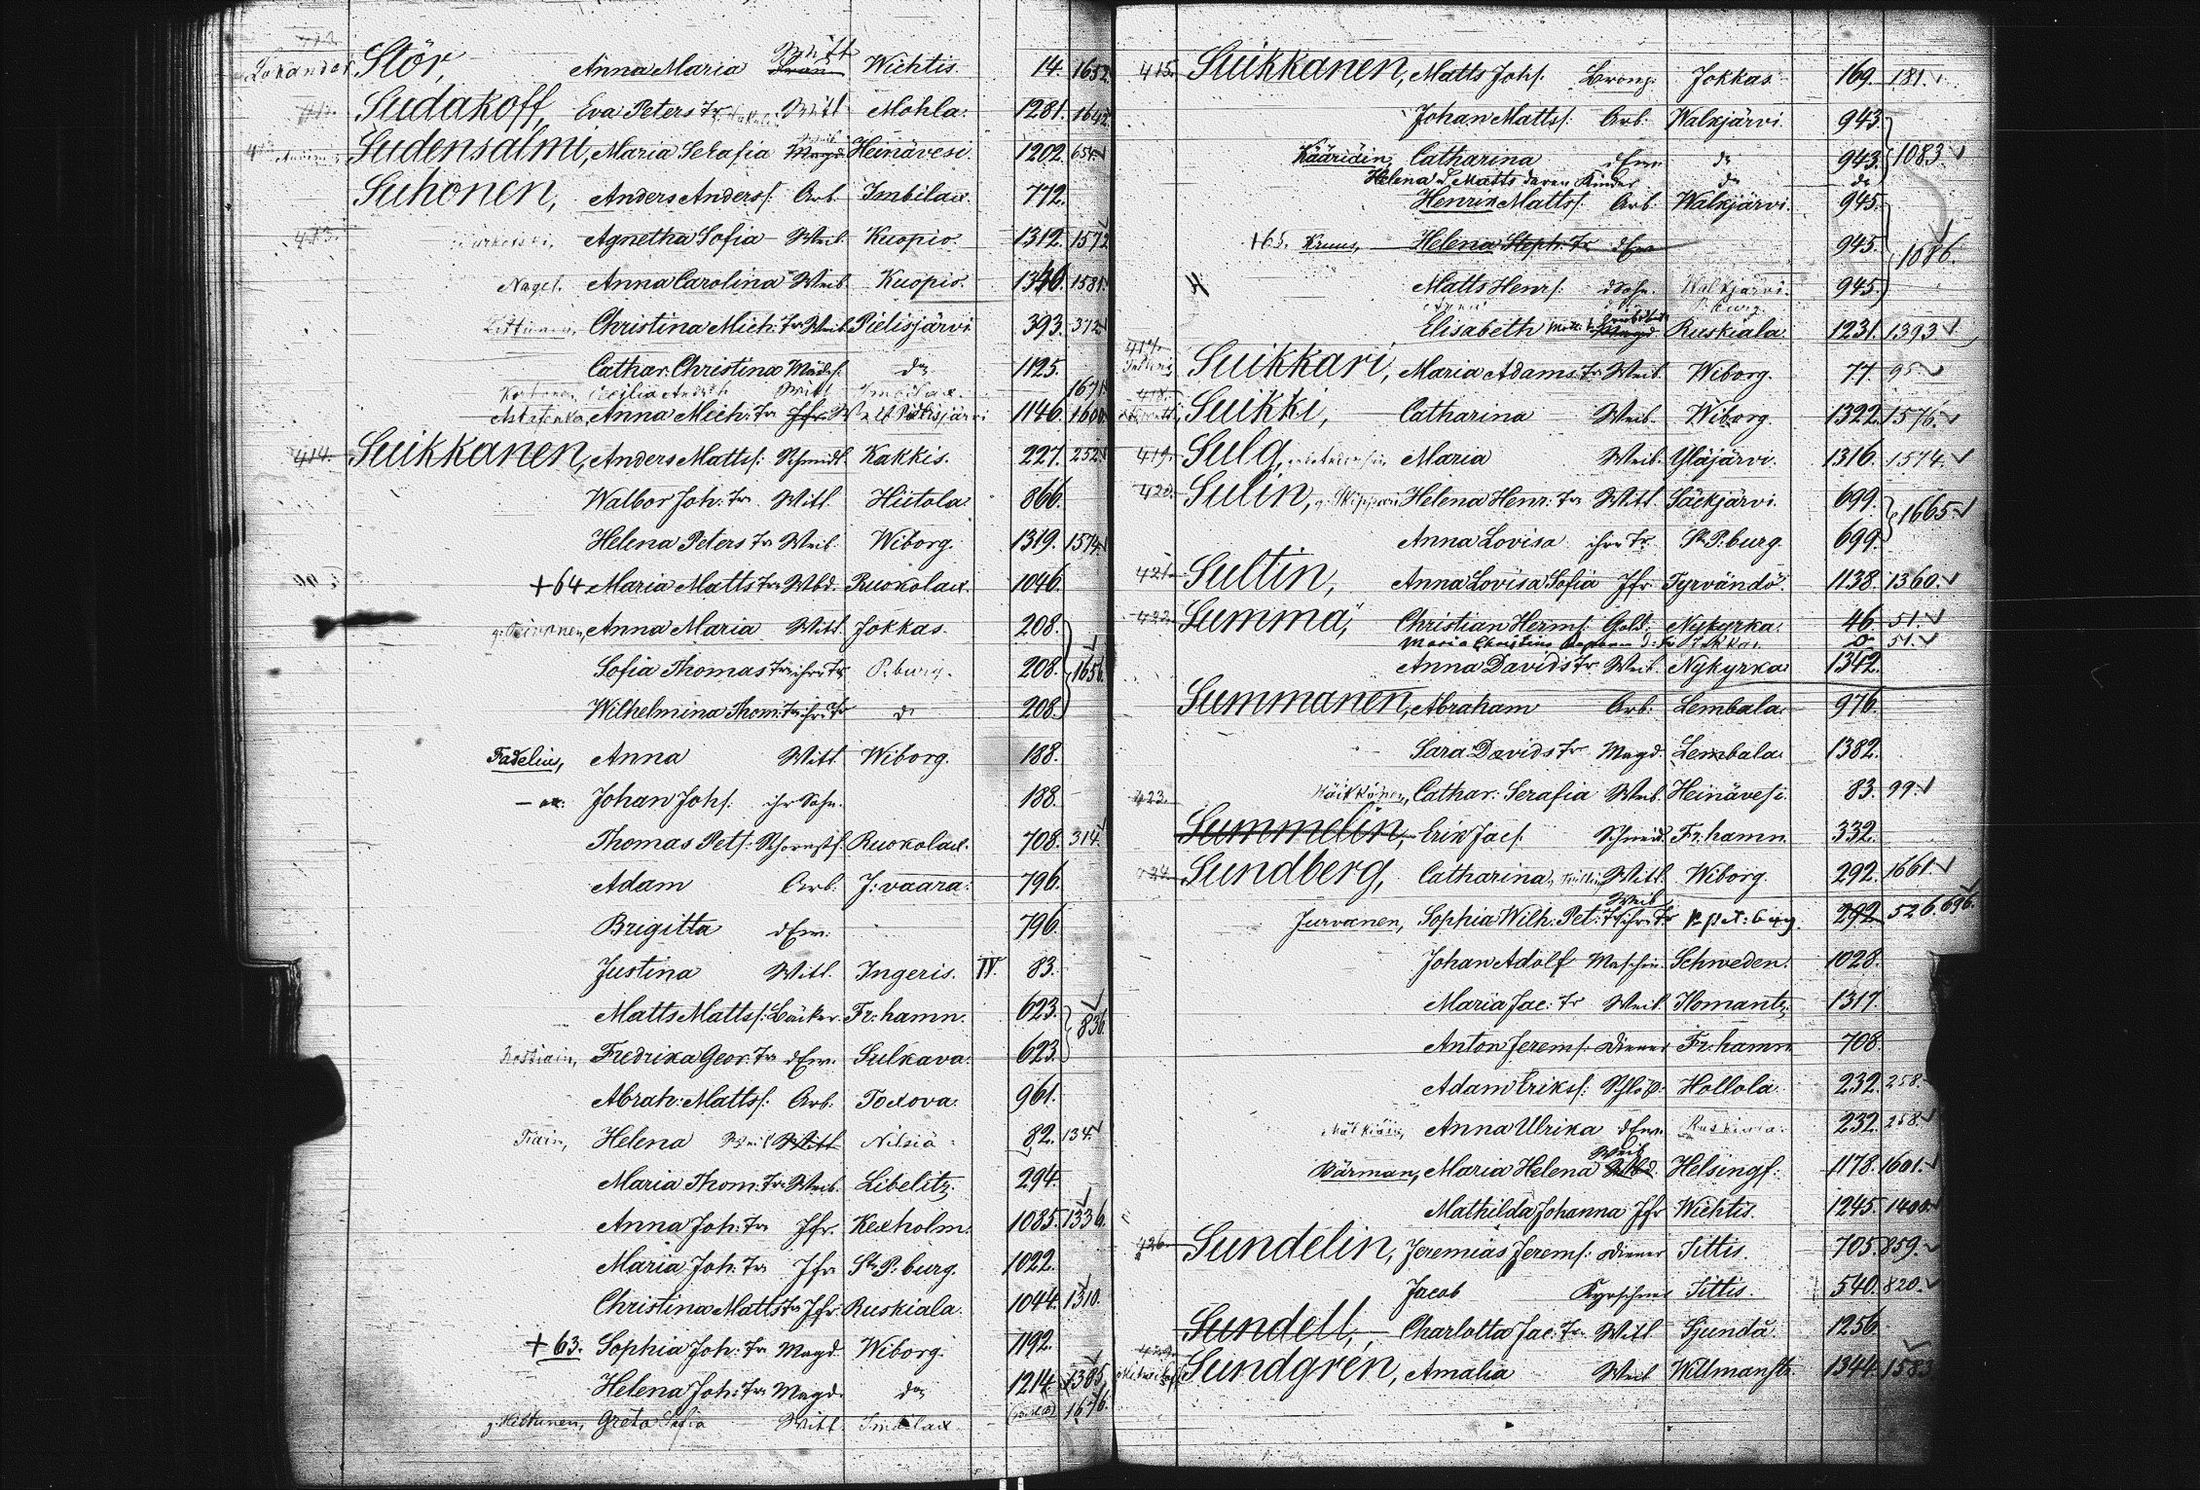 Stör, Anna Maria Witt Wichtis. 14. 1652
Sudakoff, Eva Peters Tr Witt Mohla. 1281. 1642
Sudensalmi, Maria Serafia Heinävesi. 1202. 654
Suhonen, Anders Anderss. Arb. Imbilax. 772.
Agnetha Sofia Weib. Kuopio. 1312. 1572
Nagel. Anna Carolina Weib. Kuopio. 1346. 1581
Christina Mich: Tr Weib. Pielisjärvi 393. 372
Cathar. Christina Mädch. do 1125.
Cecilia Witt Imbilax. 1671
Anna Mich: Tr Pielisjärvi 1146. 1600
414. Suikkanen, Anders Matts: Schmidt Kakkis. 227. 252
Walbor Joh: Tr Witt. Hiitola. 866.
Helena Peters Tr Weib. Wiborg. 1319. 1574
+64 Maria Matts Tr Wbd. Ruokolax. 1046.
Anna Maria Witt. Jokkas. 208.
Sofia Thomas Tr ihre Tr P.burg. 208. 1656.
Wilhelmina Thom: Tr ihr: Tr do 208.
Fadelius, Anna Witt. Wiborg. 188.
Johan Johs. ihr Sohn. 188.
Thomas Pets: Ruokolax. 708. 314
Adam Arb. J:vaara. 796.
Brigitta dErw. 796.
Justina Witt. Ingeris. IV. 83.
Matts Matts: Bäcker. Fr:hamn. 623. 836.
Fredrika Geor: Tr dErw. Sulkava. 623.
Abrah: Matts: Arb. Toxova. 961.
Train, Helena Weib Witt Nilsiä 82. 134
Maria Thom: Tr Weib. Libelitz. 294.
Anna Joh: Tr Jfr. Kexholm. 1085. 1336.
Maria Joh: Tr Jfr St P:burg. 1022.
Christina Matts Tr Jfr. Ruskiala. 1044. 1310.
+63. Sophia Joh: Tr Magd Wiborg. 1192.
Helena Joh: Tr Magd. do 1214. 1385
g. Hittunen, Greta Sofia Witt. Imbilax 1676.
415. Suikkanen, Matts Johs. Jokkas 169. 181
Johan Mattss. Arb. Walkjärvi. 943.
Kääriäin, Catharina dErw do 943. 1083
Helena & Matts deren Kinder do do
Henrik Mattss. Arb. Walkjärvi. 945.
+65. Kruus, Helena Steph: Tr dErw 945. 1086.
Matts Henrs. dSohn. Walkjärvi. 945.
Elisabeth Magd. Ruskiala. 1231. 1393
417. Suikkari, Maria Adams Tr Weib. Wiborg. 77. 95
418. Suikki, Catharina Weib. Wiborg. 1322. 1576.
419. Sula, Maria Weib. Yläjärvi. 1316. 1574.
420. Sulin, Helena Henr: Tr Witt. Säckjärvi. 699. 1665
Anna Lovisa ihre Tr. St P:burg. 699.
421. Sultin, Anna Lovisa Sofia Jfr Tyrvändö. 1138. 1360.
422. Summa, Christian Herms. Gold. Nykyrka. 46. 51.
Maria Christina 51.
Anna Davids Tr Weib. Nykyrka. 1342.
Summanen, Abraham Arb. Lembala. 976.
Sara Davids Tr Magd. Lembala. 1382.
423. Cathar: Serafia Weib. Heinävesi. 83. 99
Summelin, Erik Jacs. Schneid. Fr:hamn. 332.
424. Sundberg, Catharina, Witt. Wiborg. 292. 1661
Jurvanen, Sophia Wilh: Pet: Tr ihre Tr Weib 292. 526. 696.
Johan Adolf Maschin. Schweden. 1028.
Maria Jac: Tr Weib. Ilomantz. 1317.
Anton Jerems: Diener Fr:hamn. 708.
Adam Eriks: Hollola. 232. 258.
Anna Ulrika dErw. 232. 258.
Bärman, Maria Helena Weib Wbd. Helsingf: 1178. 1601.
Mathilda Johanna Jfr Wichtis 1245. 1400
426. Sundelin, Jeremias Jerems: Diener Sittis. 705. 859.
Jacob Sittis. 540. 820.
Sundell, Charlotta Jac: Tr Witt Sjundå. 1256.
Sundgrén, Amalia Weib Willmanstr. 1344. 1583